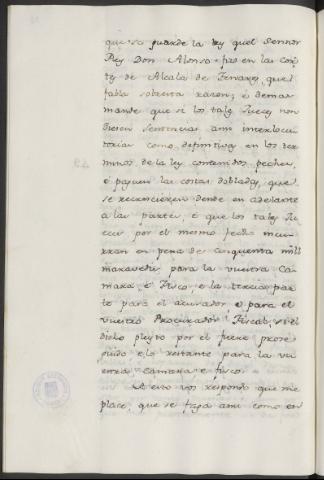 que se guarde la ley quel Sennor
Rey Don Alonso fizo en las Cor
tes de Alcala de Fenares, que
fabla sobresta razon; é demas
mande que si los tales Jueces non
dieren sentencias ansi interlocu
torias como definitivas en los ter
minos de la ley contenidos, pechen,
é paguen las costas dobladas, que
se recrescieren dende en adelante
a las partes, é que los tales Jue
ces por el mesmo fecho incur
ran en pena de cinquenta mill
maravedis para la vuestra Ca
mara, é Fisco, é la tercia par
te para el acusador, é para el
vuestro Procurador Fiscal, si el
dicho pleyto por el fuere prose
guido é lo restante para la vu
estra Camara é fisco.
A esto vos respondo que me
place, que se faga ansi como en